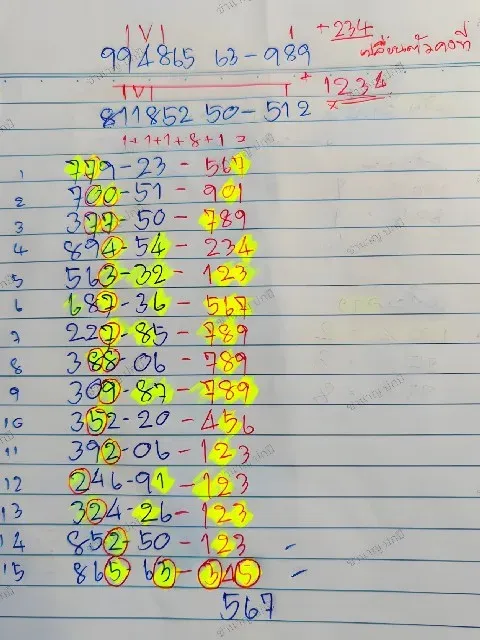 + 234
994865 63-989 เปลี่ยนตัวคงที่
+ 1234
811852 50-512 ×
1+1+1+8+1=
1 779-23-567
2 700-51-901
3 377-50-789
4 894-54-234
5 563-32-123
6 687-36-567
7 227-85-789
8 388-06-789
9 309-87-789
10 352-20-456
11 392-06-123
12 246-91-123
13 324-26-123
14 852-50-123 -
15 865 63-345 -
567